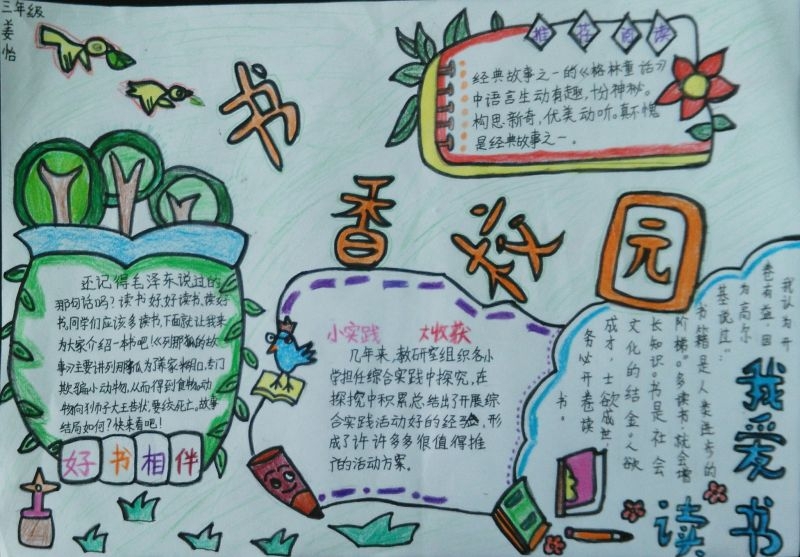 三年级
姜怡
书
香
校
园
推荐阅读
经典故事之一的《格林童话》
中语言生动有趣,十分神秘。
构思新奇,优美动听。真不愧
是经典故事之一。
还记得毛泽东说过的
那句话吗?读书好,好读书,读好
书,同学们应该多读书,下面就让我来
为大家介绍一本书吧!《列那狐的故
事》主要讲列那狐
欺骗小动物,从而得到食物,动
物向狮子大王告状,要绞死它,故事
结局如何?快来看吧!
好书相伴
小实践 大收获
几年来,教研室组织各小
学担任综合实践中探究,在
探究中积累总结出了开展综
合实践活动好的经验,形
成了许许多多很值得推
广的活动方案。
我认为开
卷有益,因
为高尔
基说过:“
书籍是人类进步的
阶梯。”多读书,就会增
长知识。书是社会
文化的结金。人欲
成才,士欲成世,
务必开卷读
书。
我爱
读书